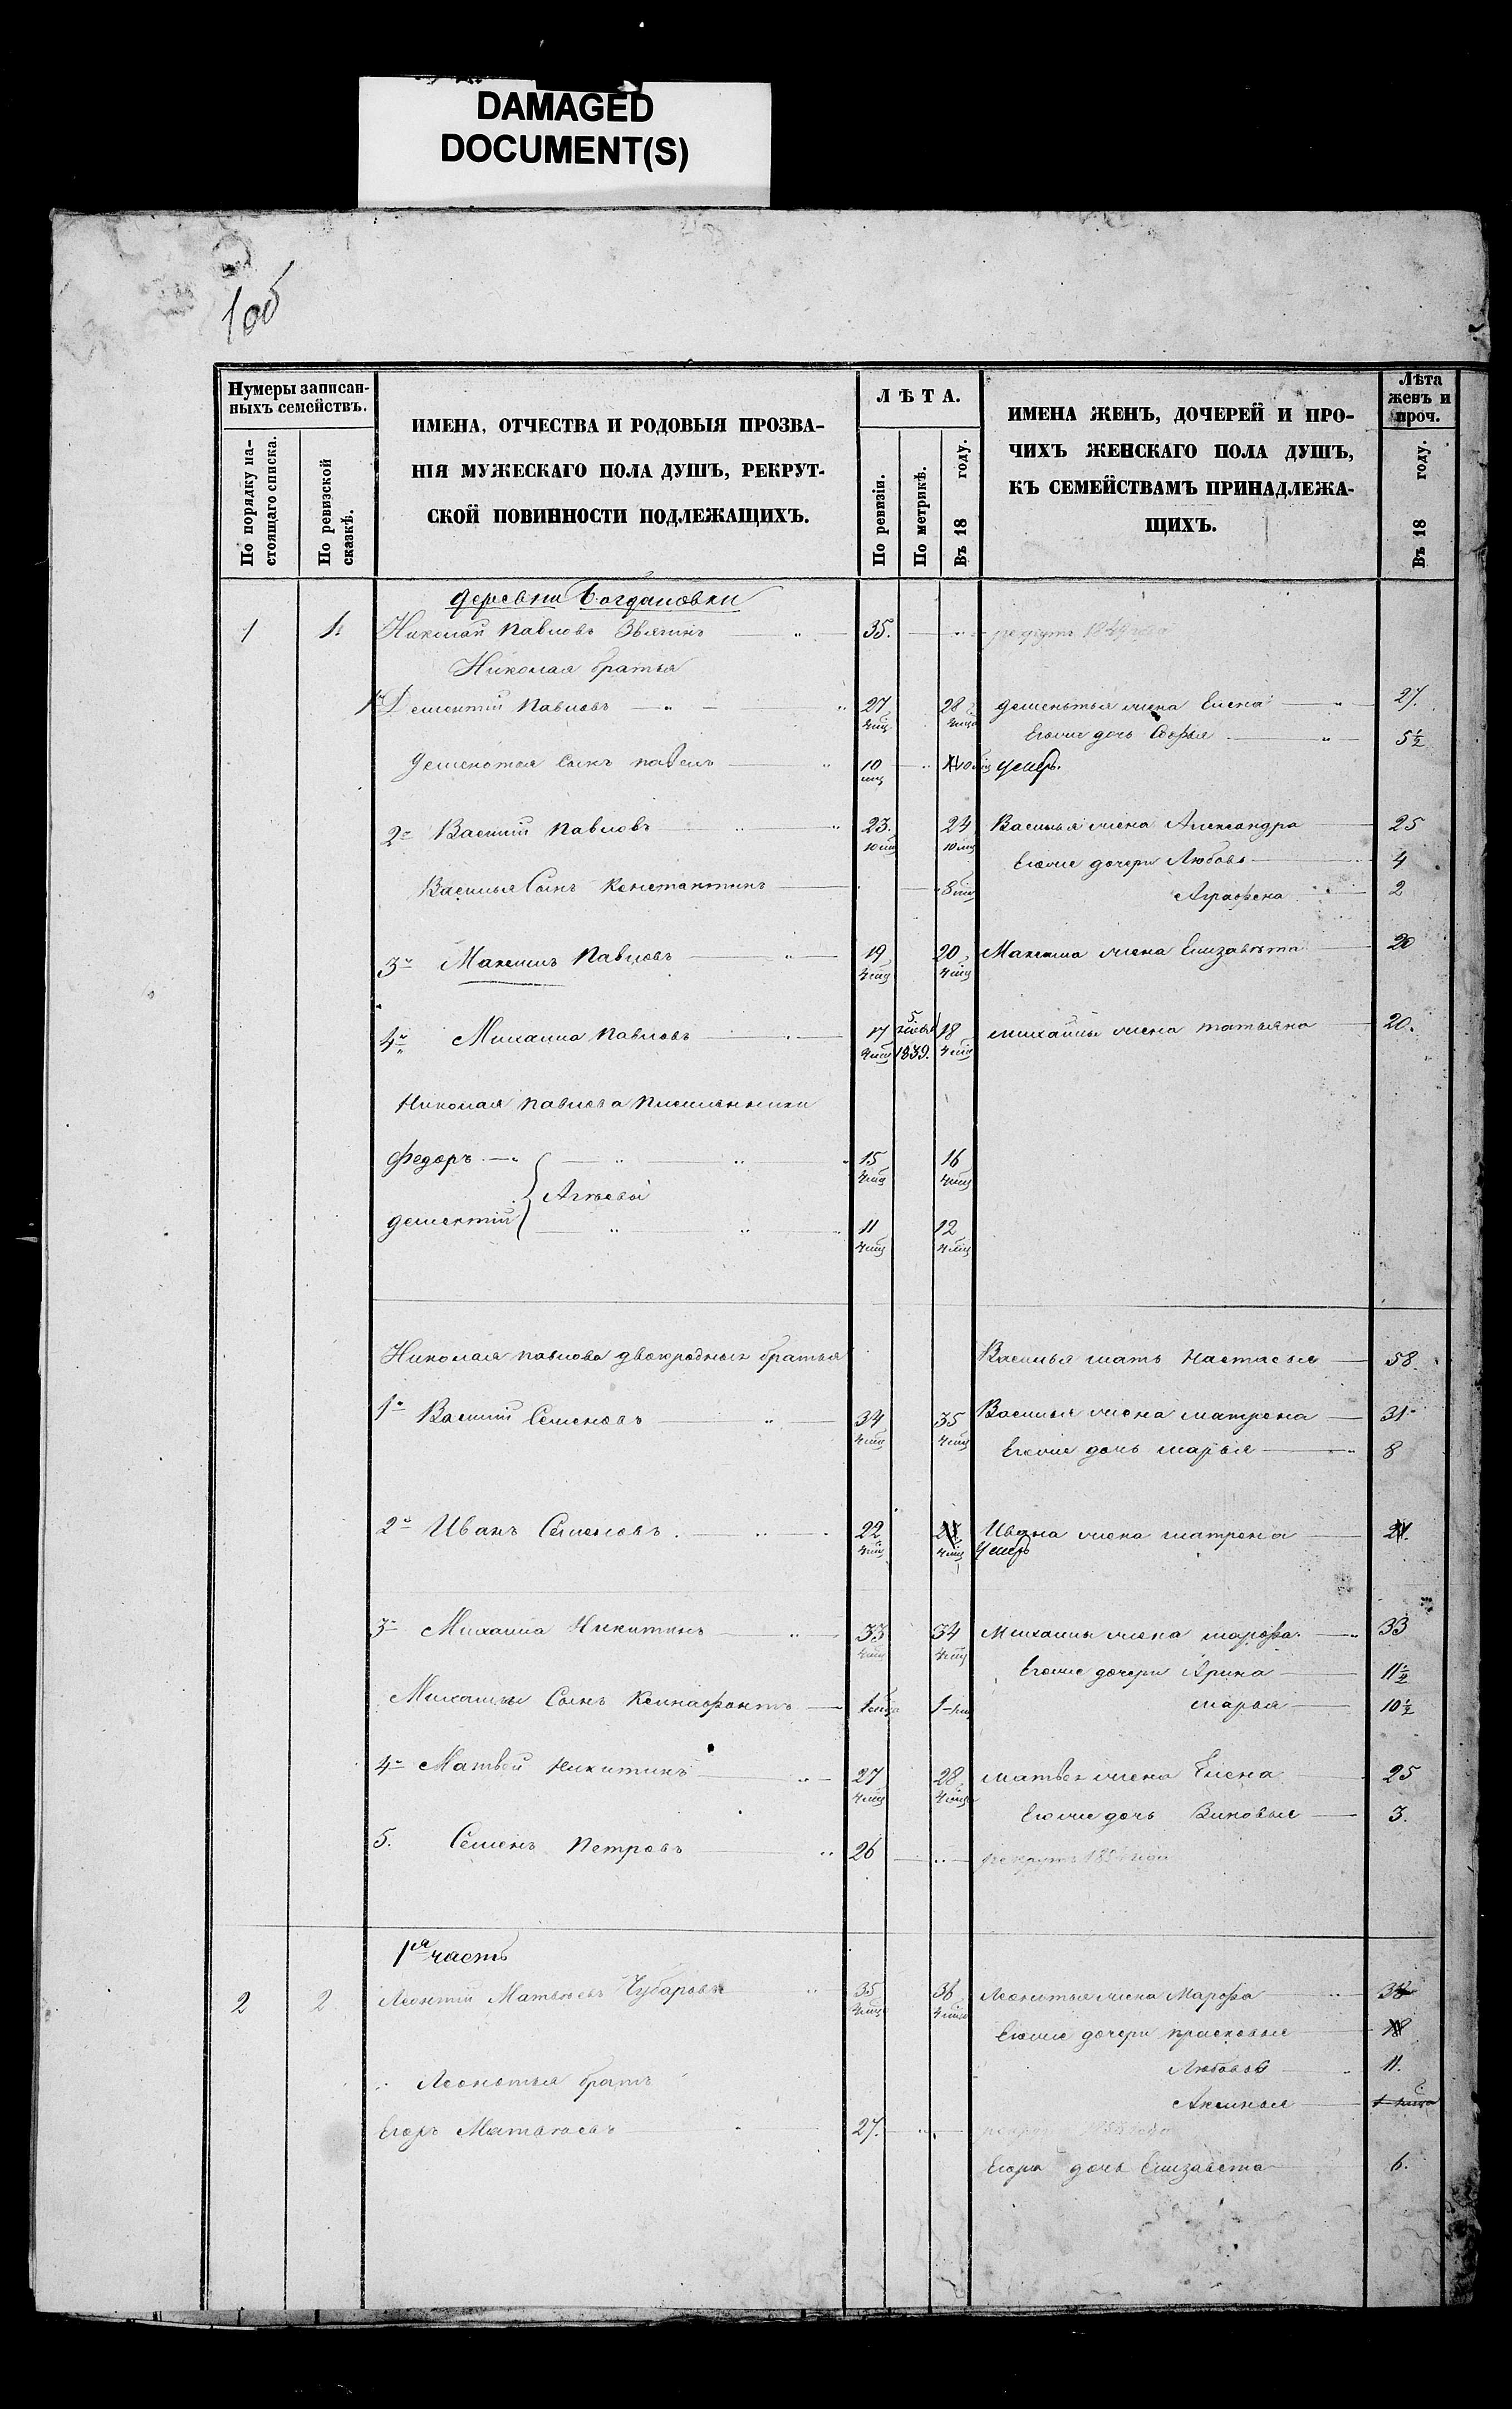 DAMAGED
DOCUMENT(S)
1об
Нумеры записан-
ныхъ семействъ.
По порядку на-
стоящаго списка.
По ревизской
сказкѣ.
ИМЕНА, ОТЧЕСТВА И РОДОВЫЯ ПРОЗВА-
НІЯ МУЖЕСКАГО ПОЛА ДУШЪ, РЕКРУТ-
СКОЙ ПОВИННОСТИ ПОДЛЕЖАЩИХЪ.
ЛѢТА.
По ревизіи.
По метрикѣ.
Въ 18 году.
ИМЕНА ЖЕНЪ, ДОЧЕРЕЙ И ПРО-
ЧИХЪ ЖЕНСКАГО ПОЛА ДУШЪ,
КЪ СЕМЕЙСТВАМЪ ПРИНАДЛЕЖА-
ЩИХЪ.
Лѣта
женъ и
проч.
Въ 18 году.
деревни Богдановки
1 1 Николай Павловъ 35. рекрутъ 1849 года
Николая братья
1й Дементій Павловъ 27 4 мц 28 4 мца Дементья жена Елена 27.
Егоже дочь Софья 5½
Дементья сынъ Павелъ 10 мц умеръ.
2й Василій Павловъ 23. 10 мц 24 10 мц Василья жена Александра 25
Егоже дочери Любовь 4
Василья Сынъ Константинъ 8 мц Аграфена 2
3й Максимъ Павловъ 19 4 мц 20 4 мц Максима жена Елизавѣта 20
4й Михаила Павловъ 17 4 мц 5 1839. 18 4 мц Михайлы жена Татьяна 20.
Николая Павлова племянники
Федоръ 15 4 мц 16 4 мц
Дементій 11 4 мц 12 4 мц
Николая Павлова двоюродныя братья Василья мать Настасья 58.
1й Василій Семеновъ 34 4 мц 35 4 мц Василья жена Матрена 31
Егоже дочь Марья 8
2й Иванъ Семеновъ. 22 4 мц 4 мц Ивана жена Матрена
умеръ
3й Михаила Никитинъ 33 4 мц 34 4 мц Михайлы жена Марфа 33
Егоже дочери Арина 11½
Михайлы Сынъ Ксенафонтъ Марья 10½
4й Матвей Никитинъ 27 4 мц 28 4 мц Матвея жена Елена 25
Егоже дочь 3.
5. Семенъ Петровъ 26 рекрутъ
1я часть
2 2 Леонтій Матвѣевъ Чубаровъ 35 4 мц 36 4 мца Леонтья жена Марфа
Егоже дочери Прасковья
Любовья 11.
Леонтья братъ
Аксинья
Егоръ Матвѣевъ 27.
Егора дочь Елизавета 6.